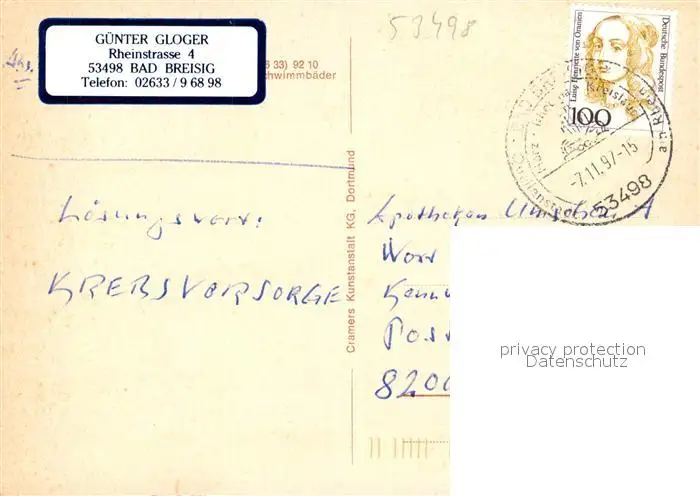 53498
GÜNTER GLOGER
Rheinstrasse 4
53498 BAD BREISIG
Telefon: 02633 / 9 68 98
Abs.
6 33) 92 10
chwimmbäder
Deutsche Bundespost
Luise Henriette von Oranien
100
-7.11.97-15
53498
Cramers Kunstanstalt KG, Dortmund
Lösungswort:
KREBSVORSORGE
Apotheken Umschau A
Wort
Kennw
Post
8200
privacy protection
Datenschutz